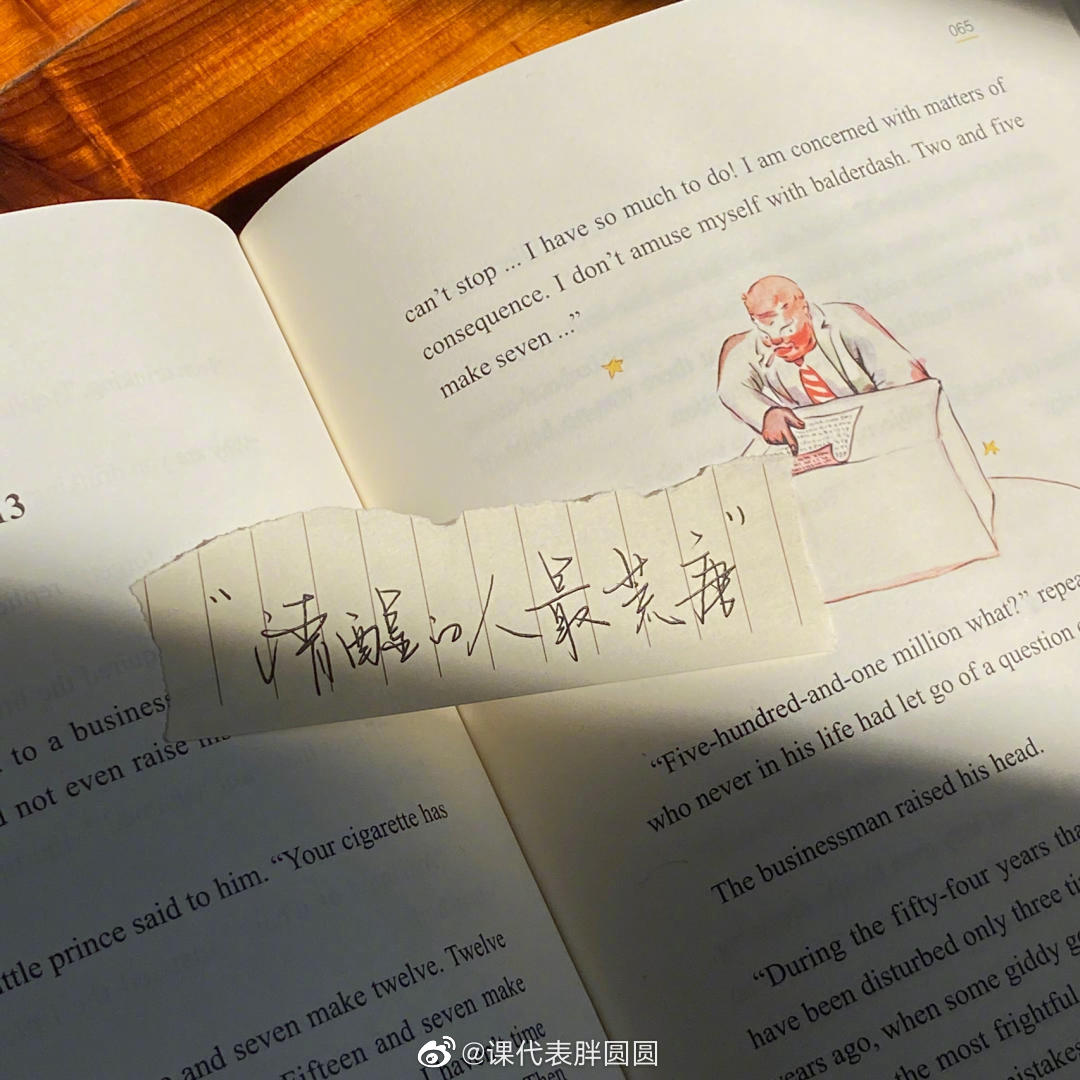 065
can't stop ... I have so much to do! I am concerned with matters of
consequence. I don't amuse myself with balderdash. Two and five
make seven ..."
"清醒的人最荒唐"
"Five-hundred-and-one million what?" repea
who never in his life had let go of a question
The businessman raised his head.
"During the fifty-four years tha
have been disturbed only three ti
ears ago, when some giddy g
the most frightful
mistakes
13
to a business
not even raise his
ttle prince said to him. "Your cigarette has
and seven make twelve. Twelve
Fifteen and seven make
I haven't time
Then
@课代表胖圆圆